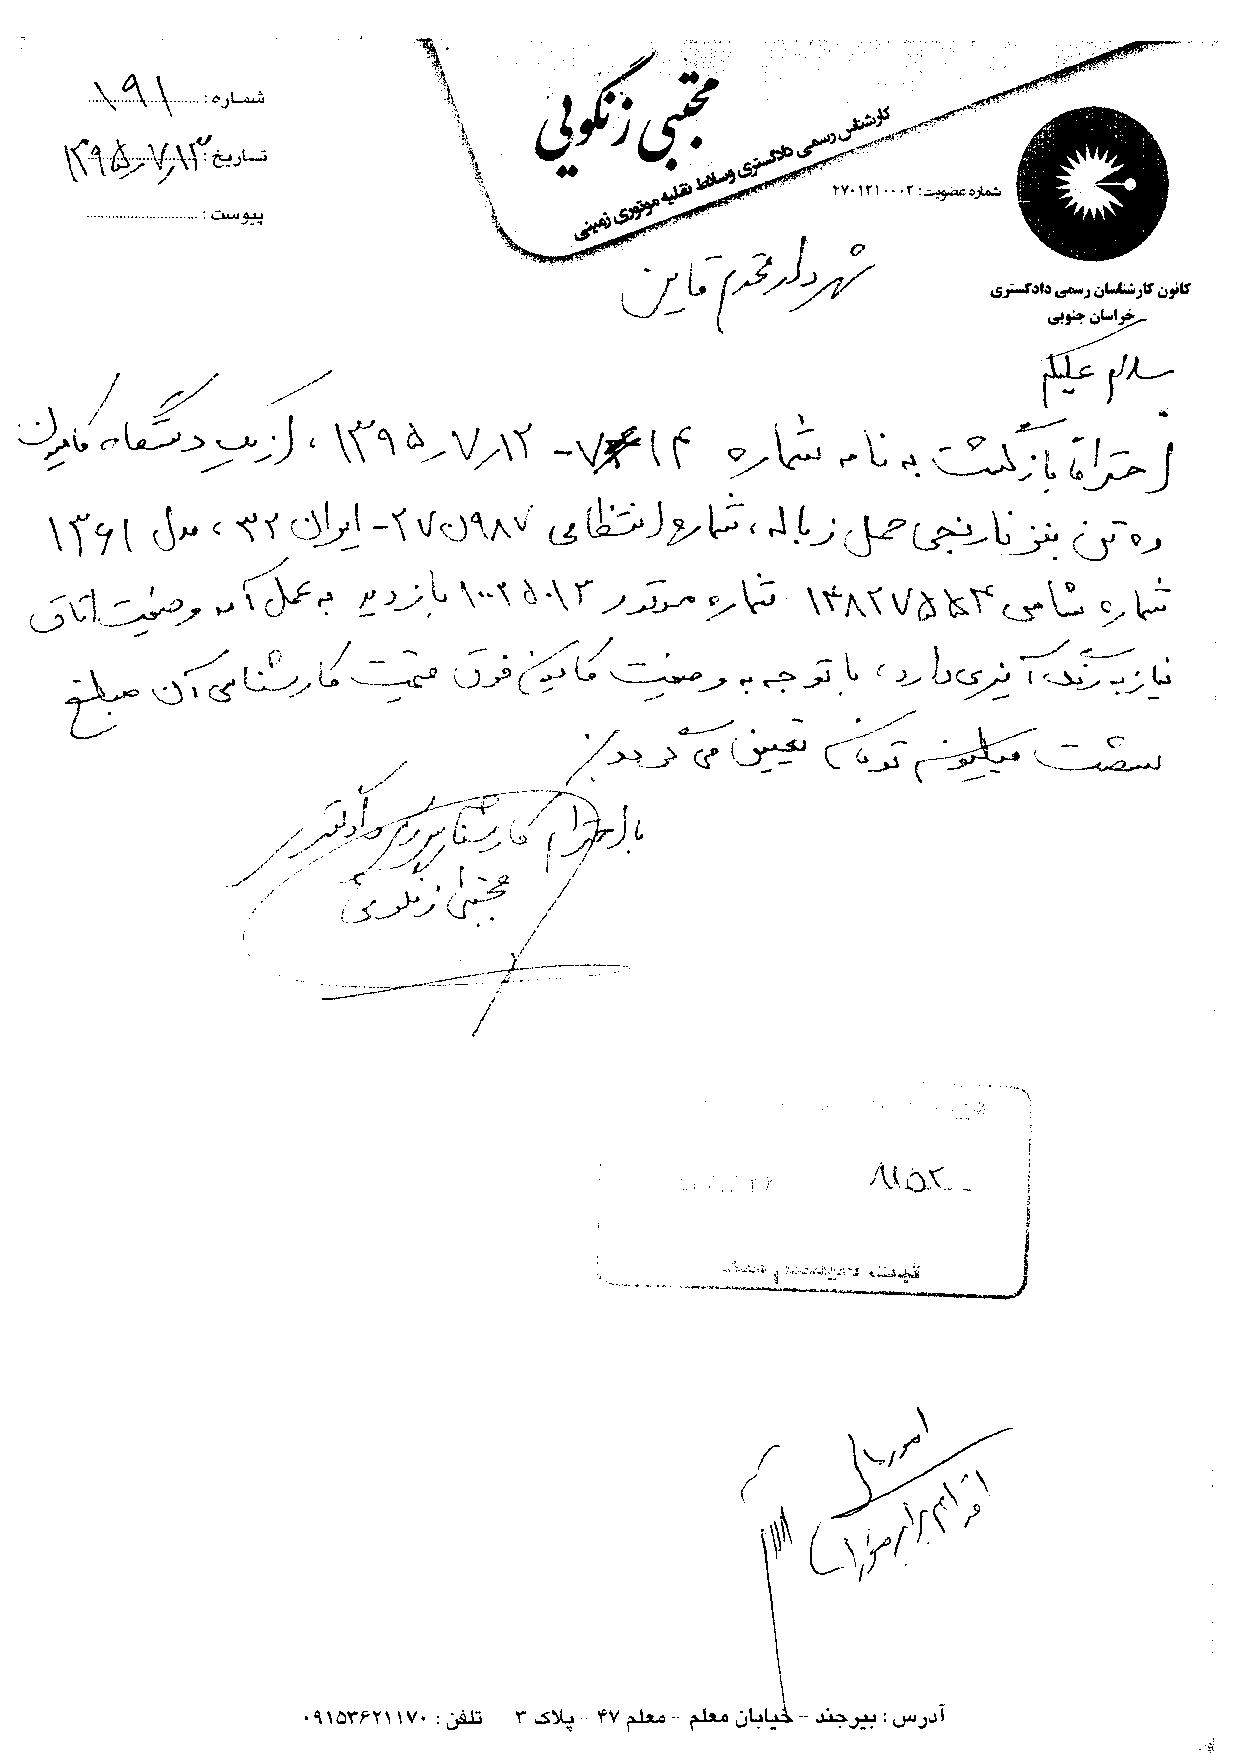 مجتبی زنگویی
کارشناس رسمی دادگستری وسائط نقلیه موتوری زمینی
شماره عضویت: ۲۷۰۱۲۱۰۰۰۲
کانون کارشناسان رسمی دادگستری
خراسان جنوبی
شماره: ۱۹۱
تاریخ: ۱۳۹۵٫۷٫۱۳
پیوست:
شهردار محترم قاین
سلام علیکم
احتراماً بازگشت به نامه شماره ۷۶۱۴-۱۳۹۵٫۷٫۱۲، از یک دستگاه کامیون
ده تن بنز نارنجی حمل زباله، شماره انتظامی ۹۸۷ن۲۷-ایران ۳۲، مدل ۱۳۶۱
شماره شاسی شماره موتور ۱۰۰۲۵۰۱۳ بازدید به عمل آمد وضعیت اتاق
نیاز به رنگ آمیزی دارد، با توجه به وضعیت کامیون فوق قیمت کارشناسی آن مبلغ
شصت میلیون تومان تعیین می گردد.
با احترام کارشناس رسمی دادگستری
مجتبی زنگویی
۸۱۵۲
امور مالی
اقدام برابر مقررات
آدرس: بیرجند - خیابان معلم - معلم ۴۷ - پلاک ۳ تلفن: ۰۹۱۵۳۶۲۱۱۷۰